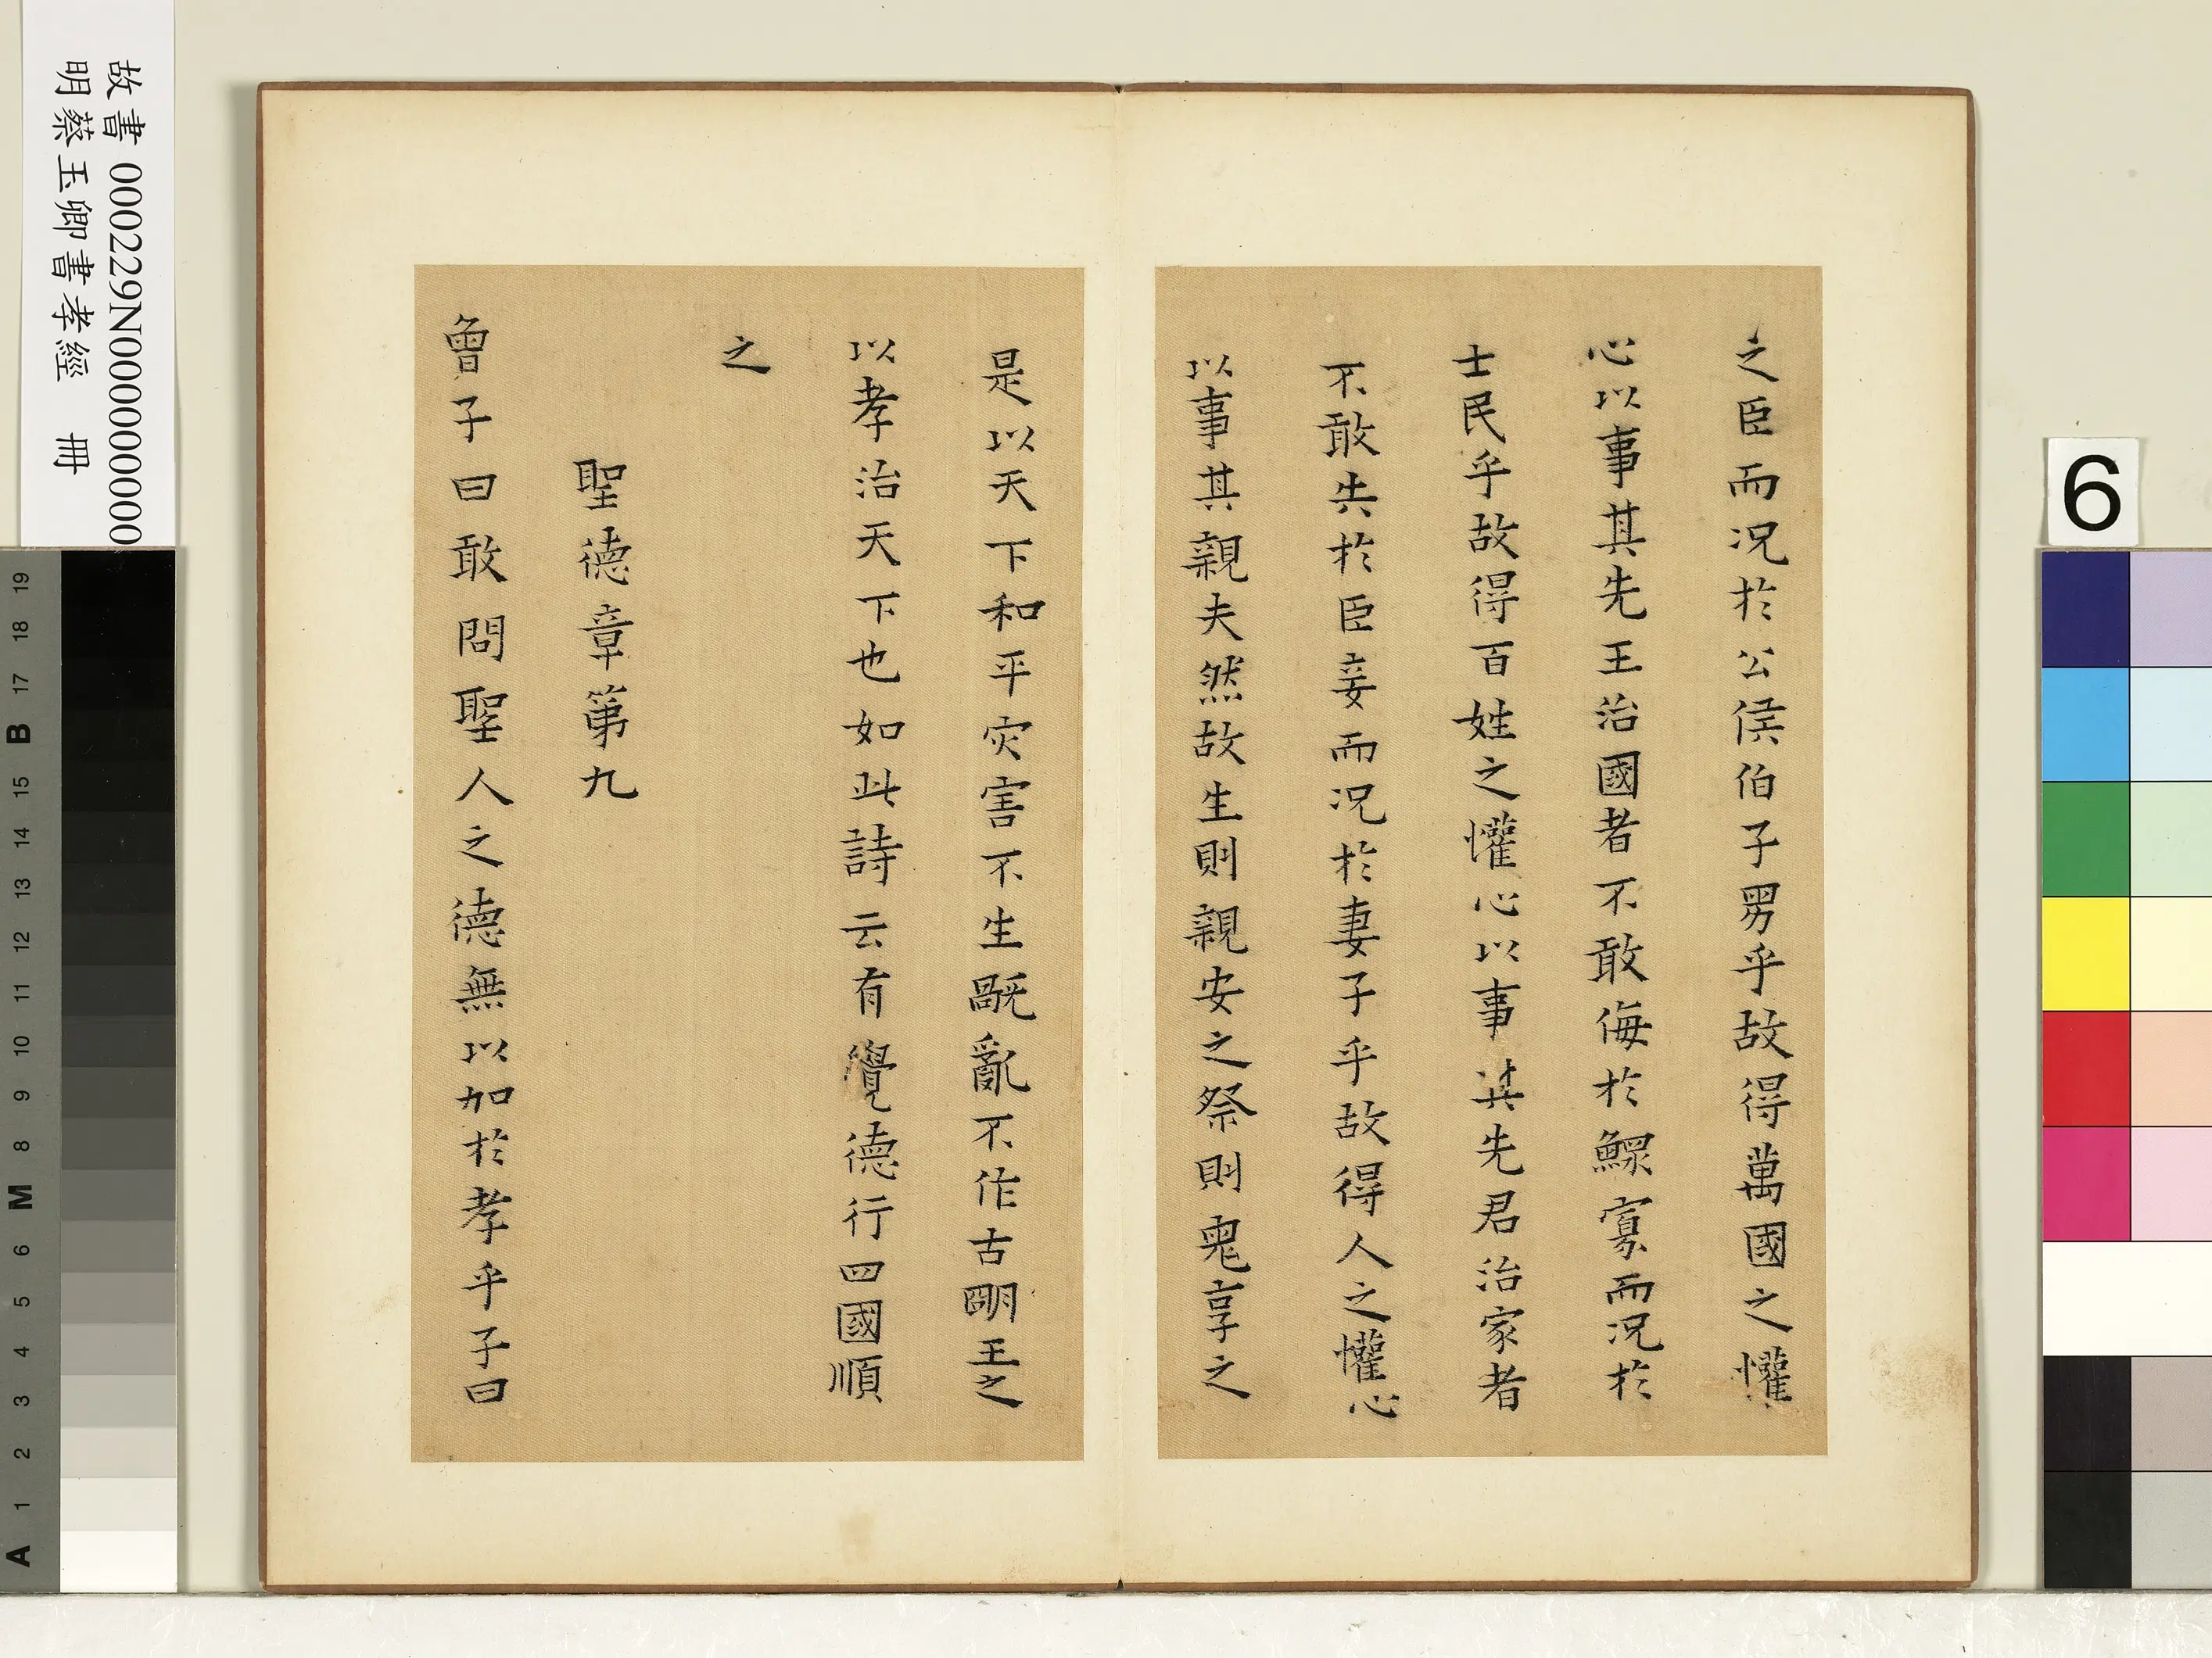 之臣而况於公侯伯子男乎故得萬國之懽
心以事其先王治國者不敢侮於鰥寡而況於
士民乎故得百姓之懽心以事其先君治家者
不敢失於臣妾而況於妻子乎故得人之懽心
以事其親夫然故生則親安之祭則鬼享之
是以天下和平灾害不生禍亂不作古明王之
以孝治天下也如此詩云有覺德行四國順
之
聖德章第九
曾子曰敢問聖人之德無以加於孝乎子曰
故書 000229N000000000
明蔡玉卿書孝經 冊
6
19
18
17
B
15
14
13
12
11
10
9
8
M
6
5
4
3
2
1
A